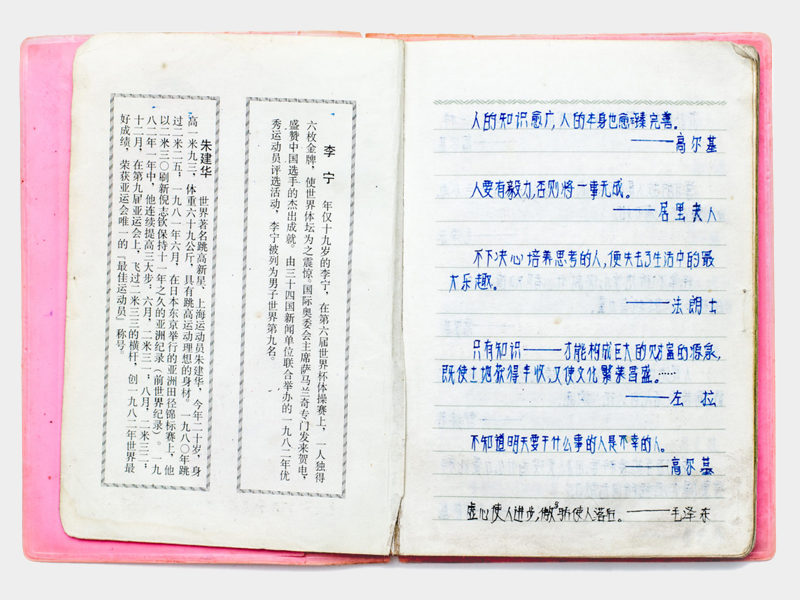 李 宁 年仅十九岁的李宁，在第六届世界杯体操赛上，一人独得
六枚金牌，使世界体坛为之震惊，国际奥委会主席萨马兰奇专门发来贺电，
盛赞中国选手的杰出成就。由三十四国新闻单位联合举办的一九八二年优
秀运动员评选活动，李宁被列为男子世界第九名。
朱建华 世界著名跳高新星、上海运动员朱建华，今年二十岁，身
高一米九三，体重六十九公斤，具有跳高运动理想的身材。一九八〇年跳
过二米二五，一九八一年六月，在日本东京举行的亚洲田径锦标赛上，他
以二米三〇刷新倪志钦保持十一年之久的亚洲纪录（前世界纪录）。一九
八二年一年中，他连续提高三大步：六月，二米三一；八月，二米三二；
十二月，在第九届亚运会上，飞过二米三三的横杆，创一九八二年世界最
好成绩，荣获亚运会唯一的『最佳运动员』称号。
人的知识愈广，人的本身也愈臻完善。
——高尔基
人要有毅力，否则将一事无成。
——居里夫人
不下决心培养思考的人，便失去了生活中的最
大乐趣。
——法朗士
只有知识——才能构成巨大的财富的源泉，
既使土地获得丰收，又使文化繁荣昌盛。……
——左拉
不知道明天要干什么事的人是不幸的人。
——高尔基
虚心使人进步，骄傲使人落后。——毛泽东